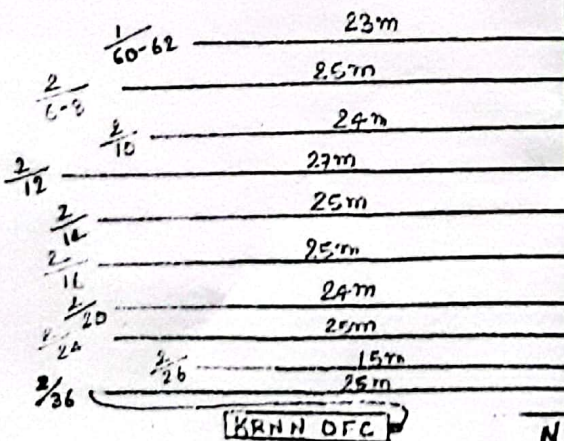 1/60-62 23m
2/6-8 25m
2/10 24m
2/12 27m
2/14 25m
2/16 25m
2/20 24m
2/24 25m
2/26 15m
2/36 25m
KRNN OFC
N